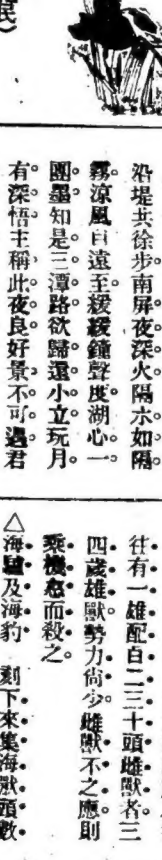 民）
沿堤共徐步南屏夜深火隔水如隔
霧。涼風自遠至。緩緩鐘聲度湖心。一
團墨。知是三潭路。欲歸還小立。玩月。
有深悟。主稱此夜良。好景不可遇。君
往有一雄配自二三十頭雌獸者三
四歲雄獸勢力尙少。雌獸不之應。則
乘機忿而殺之。
△海驢及海豹　刻下來集海獸頭數